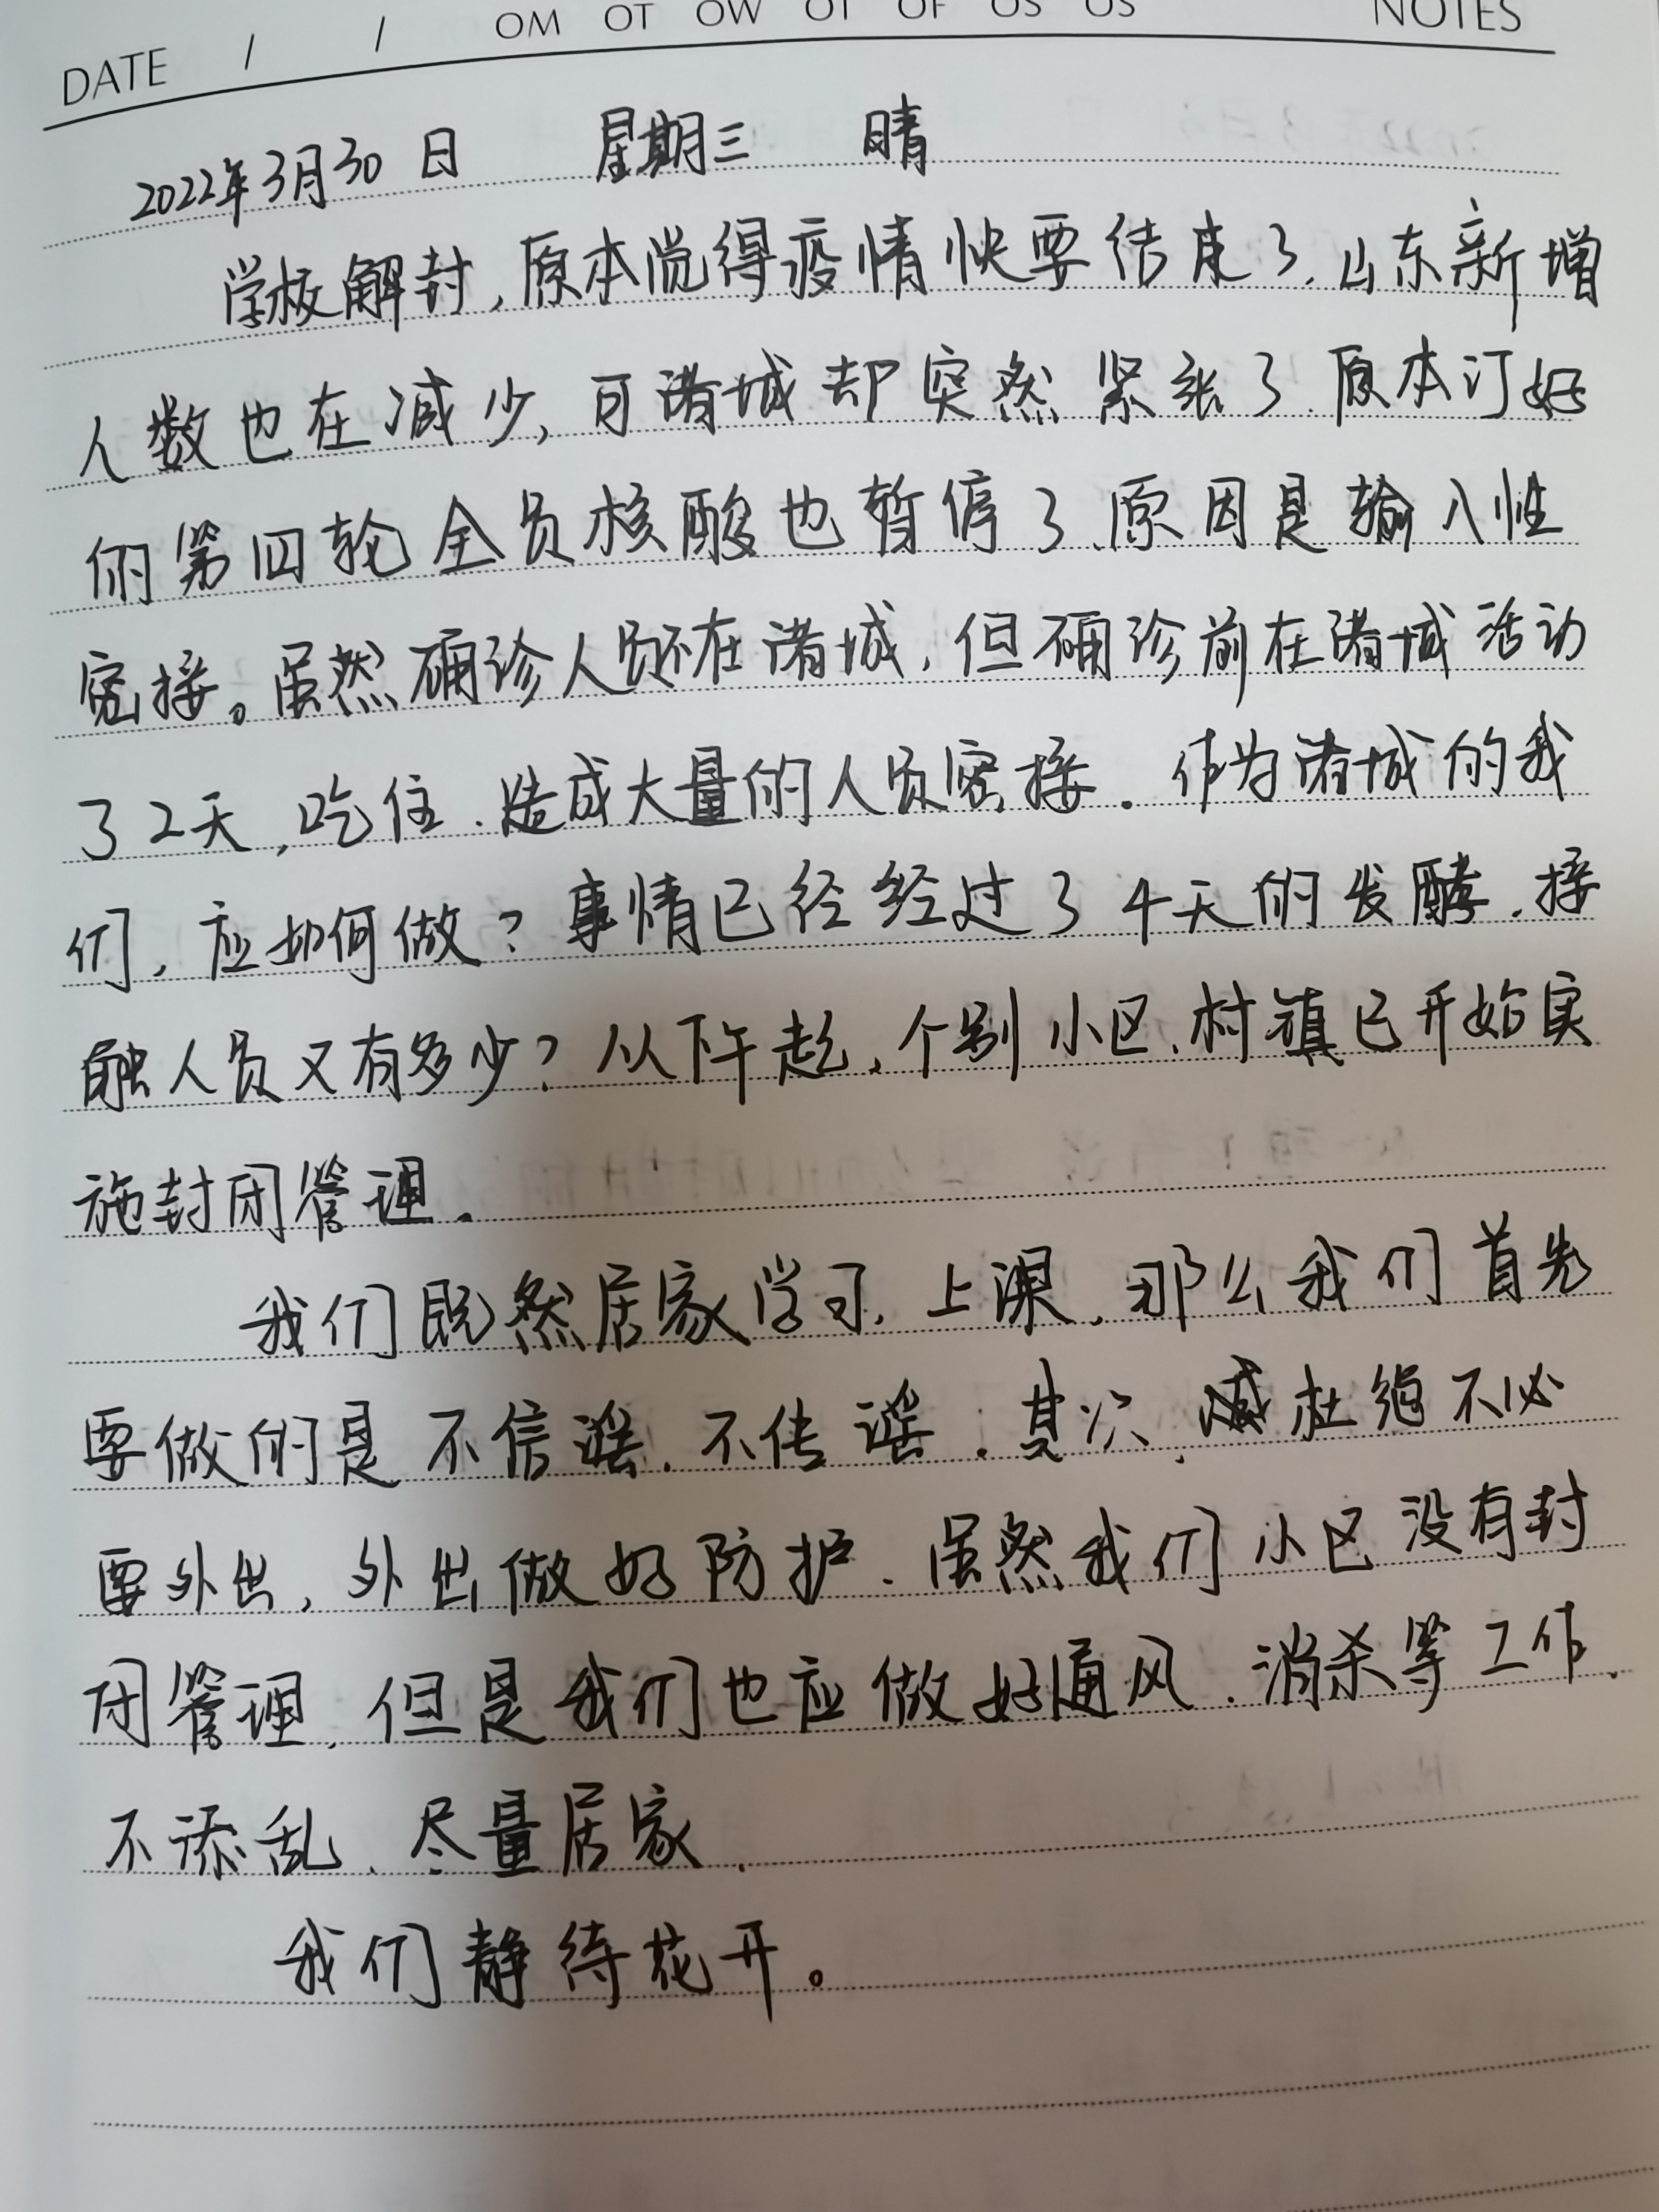 DATE / / OM OT OW OT OF OS OS NOTES
2022年3月30日 星期三 晴
学校解封,原本觉得疫情快要结束了,山东新增
人数也在减少,可诸城却突然紧张了.原本订好
的第四轮全员核酸也暂停了.原因是输入性
密接。虽然确诊人员不在诸城,但确诊前在诸城活动
了2天,吃住.造成大量的人员密接.作为诸城的我
们,应如何做?事情已经经过了4天的发酵.接
触人员又有多少?从下午起,个别小区.村镇已开始实
施封闭管理.
我们既然居家学习,上课,那么我们首先
要做的是不信谣.不传谣.其次,杜绝不必
要外出,外出做好防护.虽然我们小区没有封
闭管理,但是我们也应做好通风.消杀等工作.
不添乱.尽量居家.
我们静待花开。